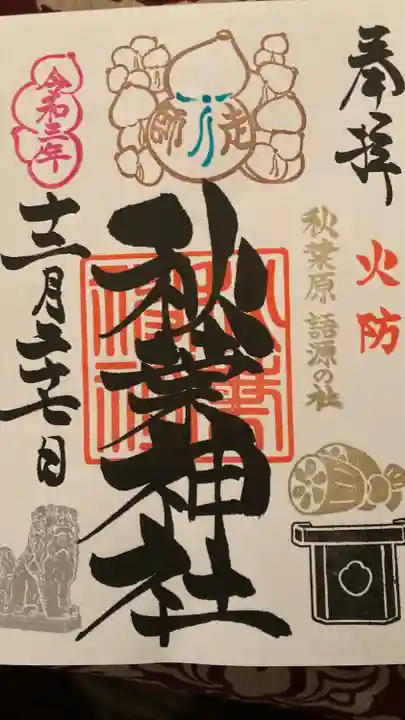 奉拝
火防
秋葉原 語源の社
走師
秋葉神社
令和三年
十二月二十七日